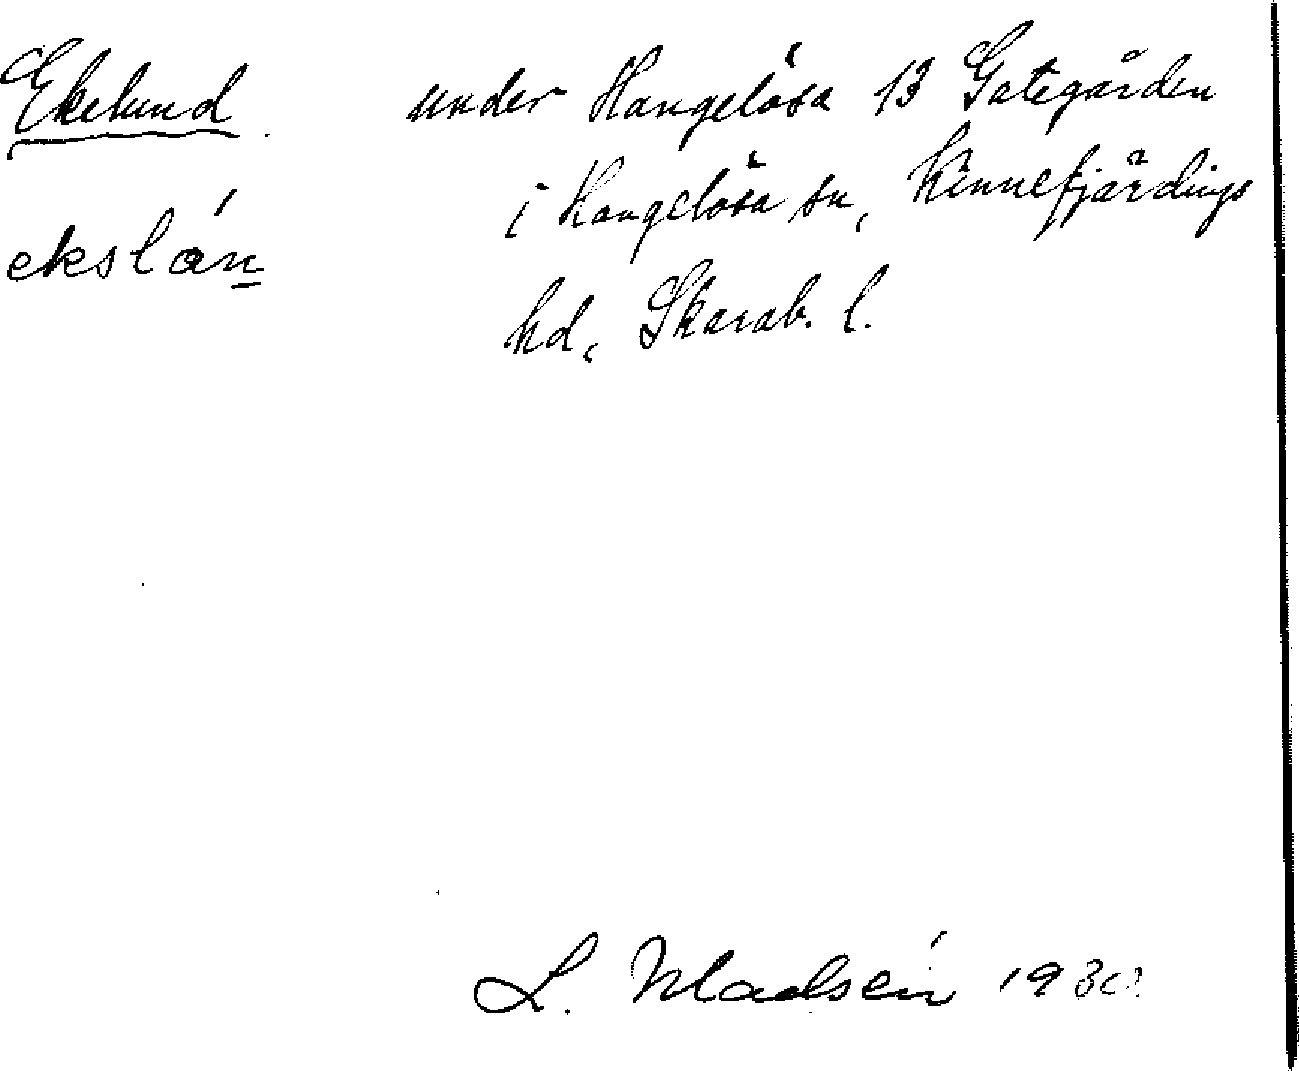 Ekelund under Hangelösa 13 Gategården
i Hangelösa sn, Kinnefjärdings
ekslán
hd, Skarab. l.
L. Madsén 1930